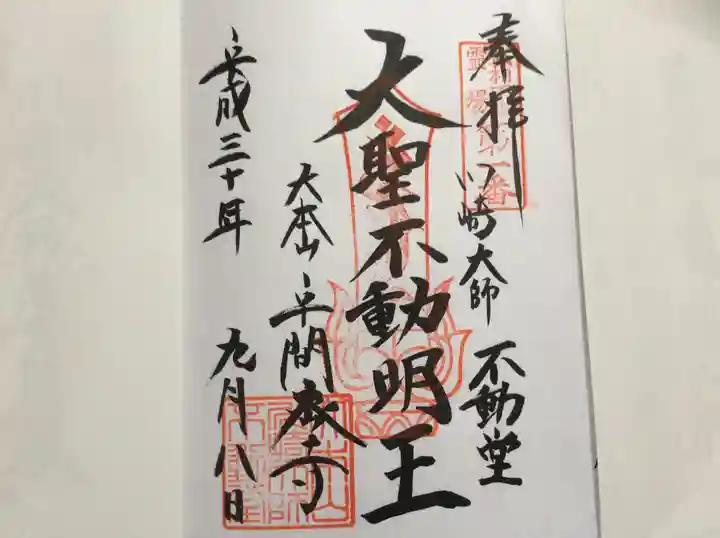 奉拝
川崎大師 不動堂
大聖不動明王
大本山 平間教寺
平成三十年 九月八日